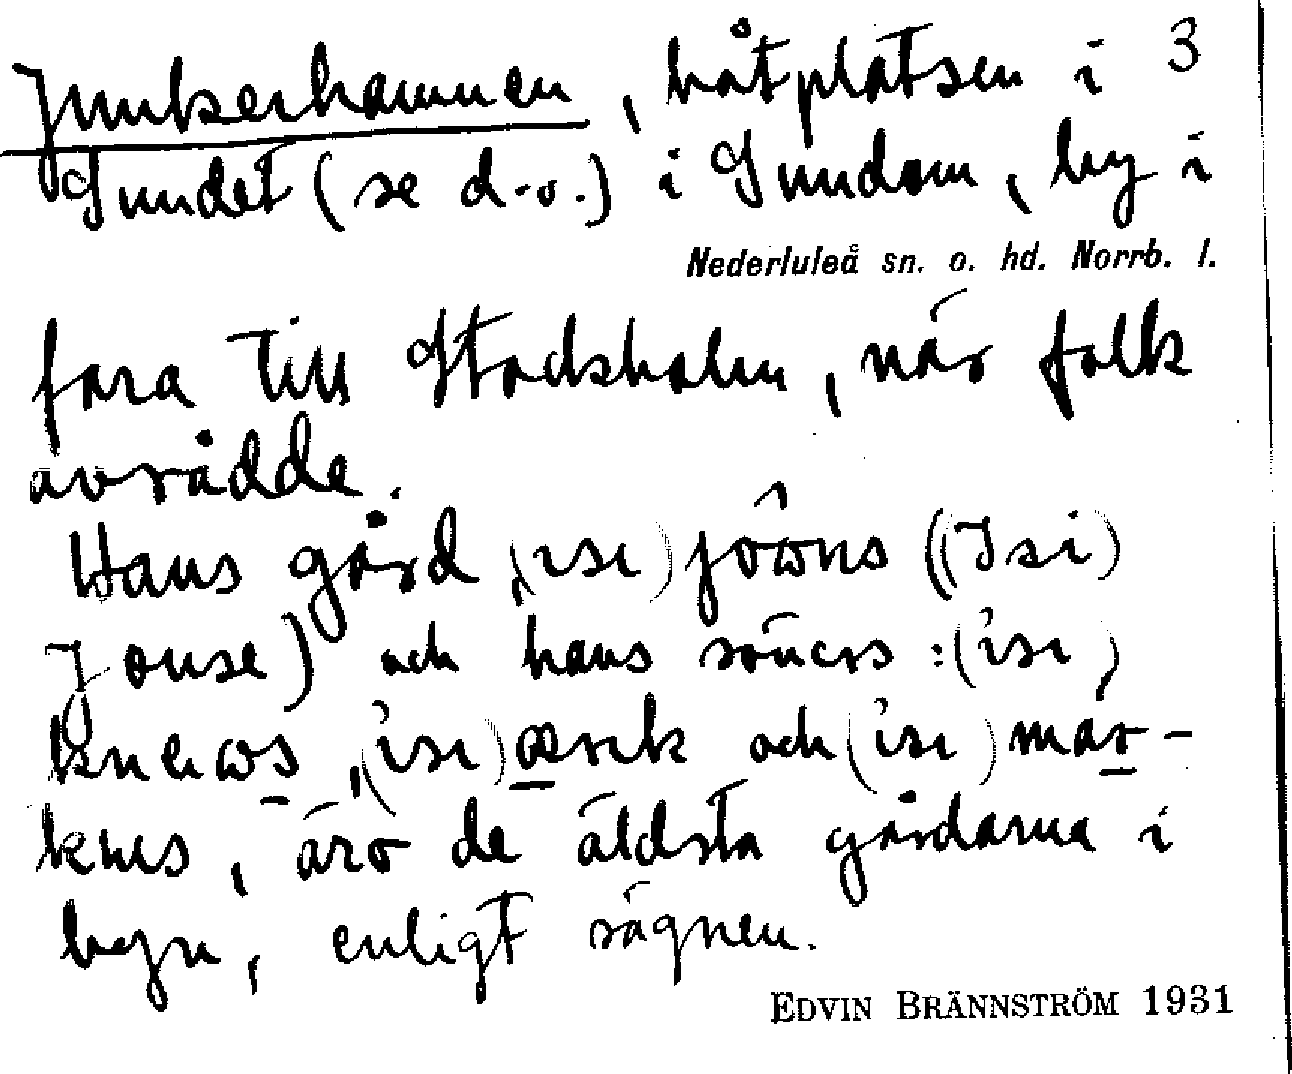 Junkerhamnen, båtplatsen i 3
Sundet (se d.o.) i Sundom, by i
Nederluleå sn. o. hd. Norrb. l.
fara till Stadsholm, när folk
avrådde.
Hans gård, (ısı) jôωns ((Isi)
Jonse) och hans söners: (ısı)
knɛωs, (ısı) ærık och (ısı) mar-
kus, äro de äldsta gårdarna i
byn, enligt sägnen.
EDVIN BRÄNNSTRÖM 1931